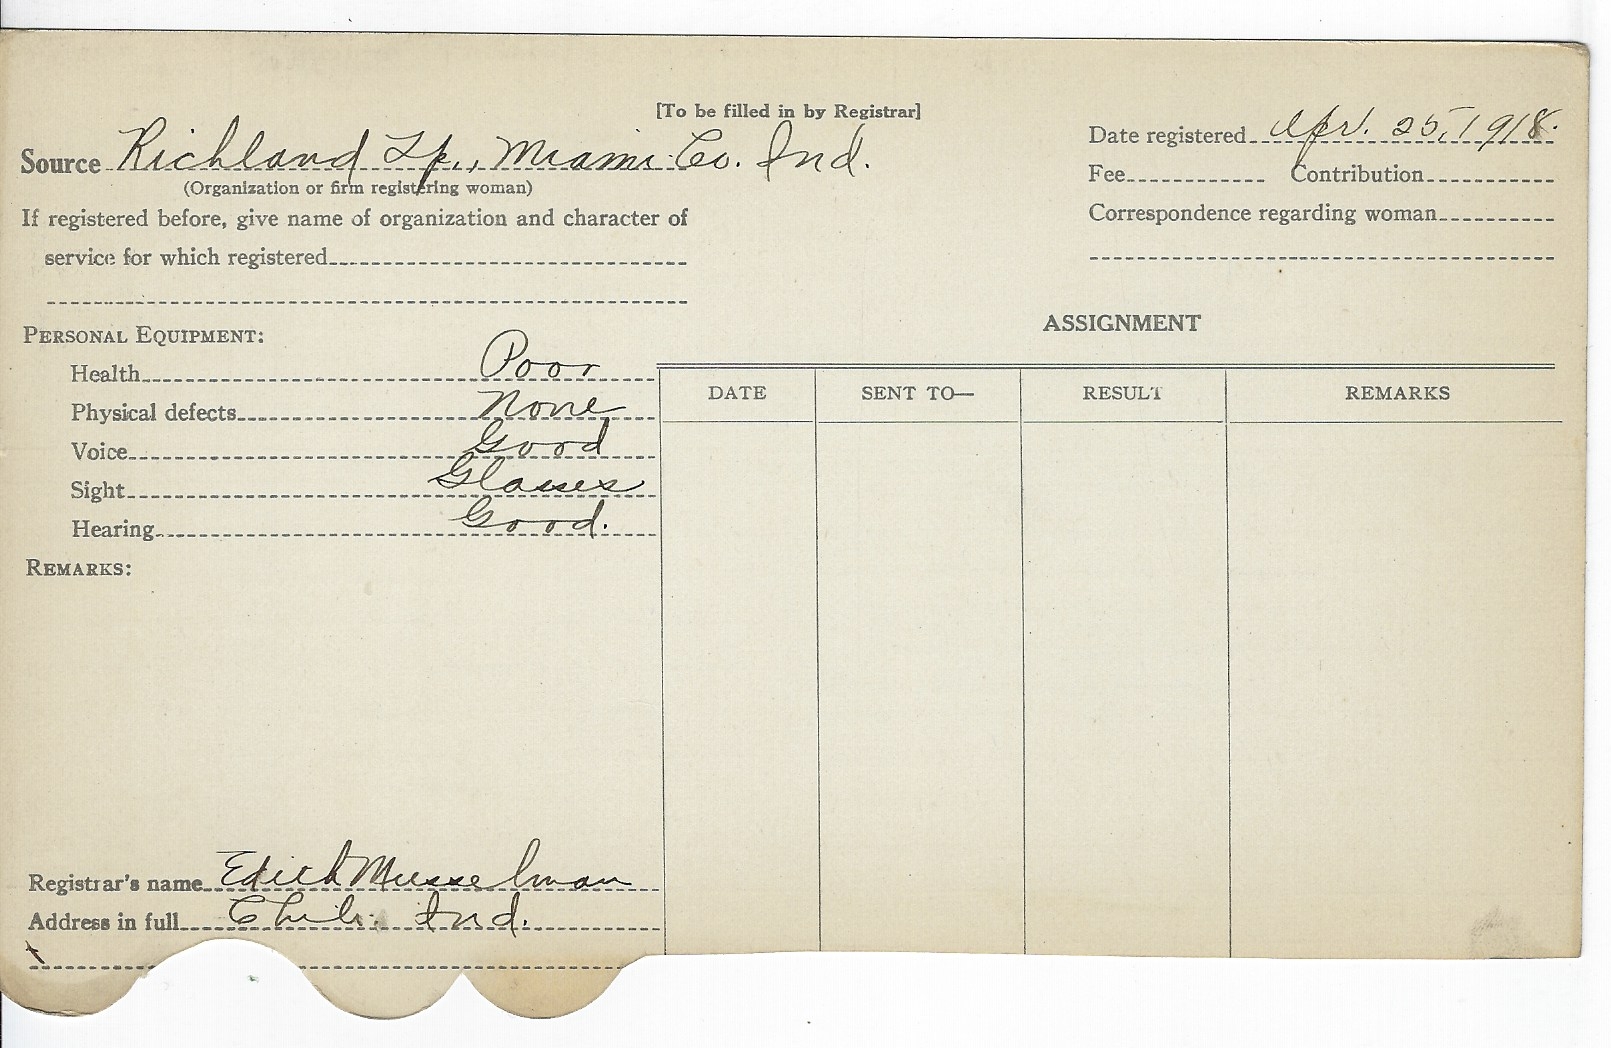 [To be filled in by Registrar]
Source Richland Tp., Miami Co. Ind.
(Organization or firm registering woman)
If registered before, give name of organization and character of
service for which registered
Date registered Apr. 25, 1918.
Fee Contribution
Correspondence regarding woman
PERSONAL EQUIPMENT:
Health Poor
Physical defects None
Voice Good
Sight Glasses
Hearing Good.
REMARKS:
ASSIGNMENT
DATE SENT TO— RESULT REMARKS
Registrar's name Edith Musselman
Address in full Chili Ind.